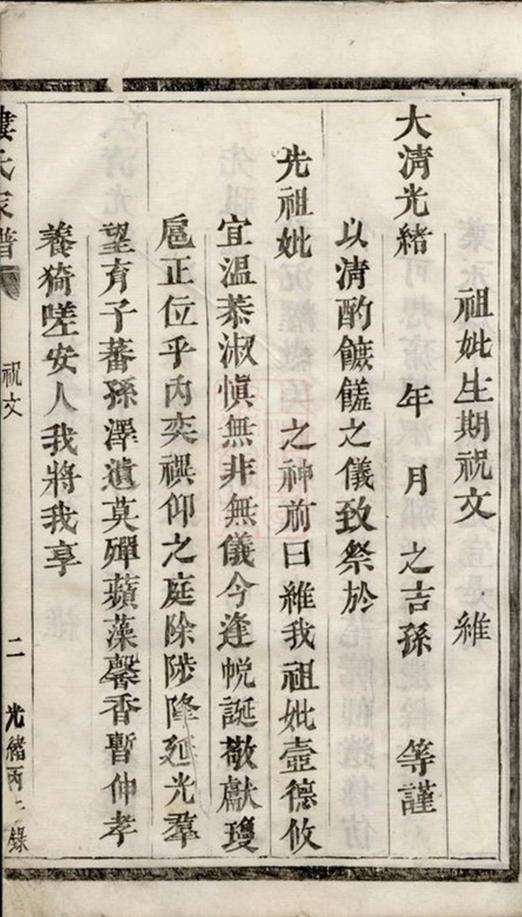 祖妣生期祝文　維
大清光緒　年　月　之吉孫　等謹
以清酌餴饈之儀致祭於
先祖妣　之神前曰維我祖妣壼德攸
宜溫恭淑愼無非無儀今逢帨誕敬獻瓊
巵正位乎內奕禩仰之庭除陟降延光羣
望育子蕃孫澤遺莫殫蘋藻馨香暫伸孝
養猗嗟安人我將我享
婁氏家譜
祝文
二
光緒丙　錄